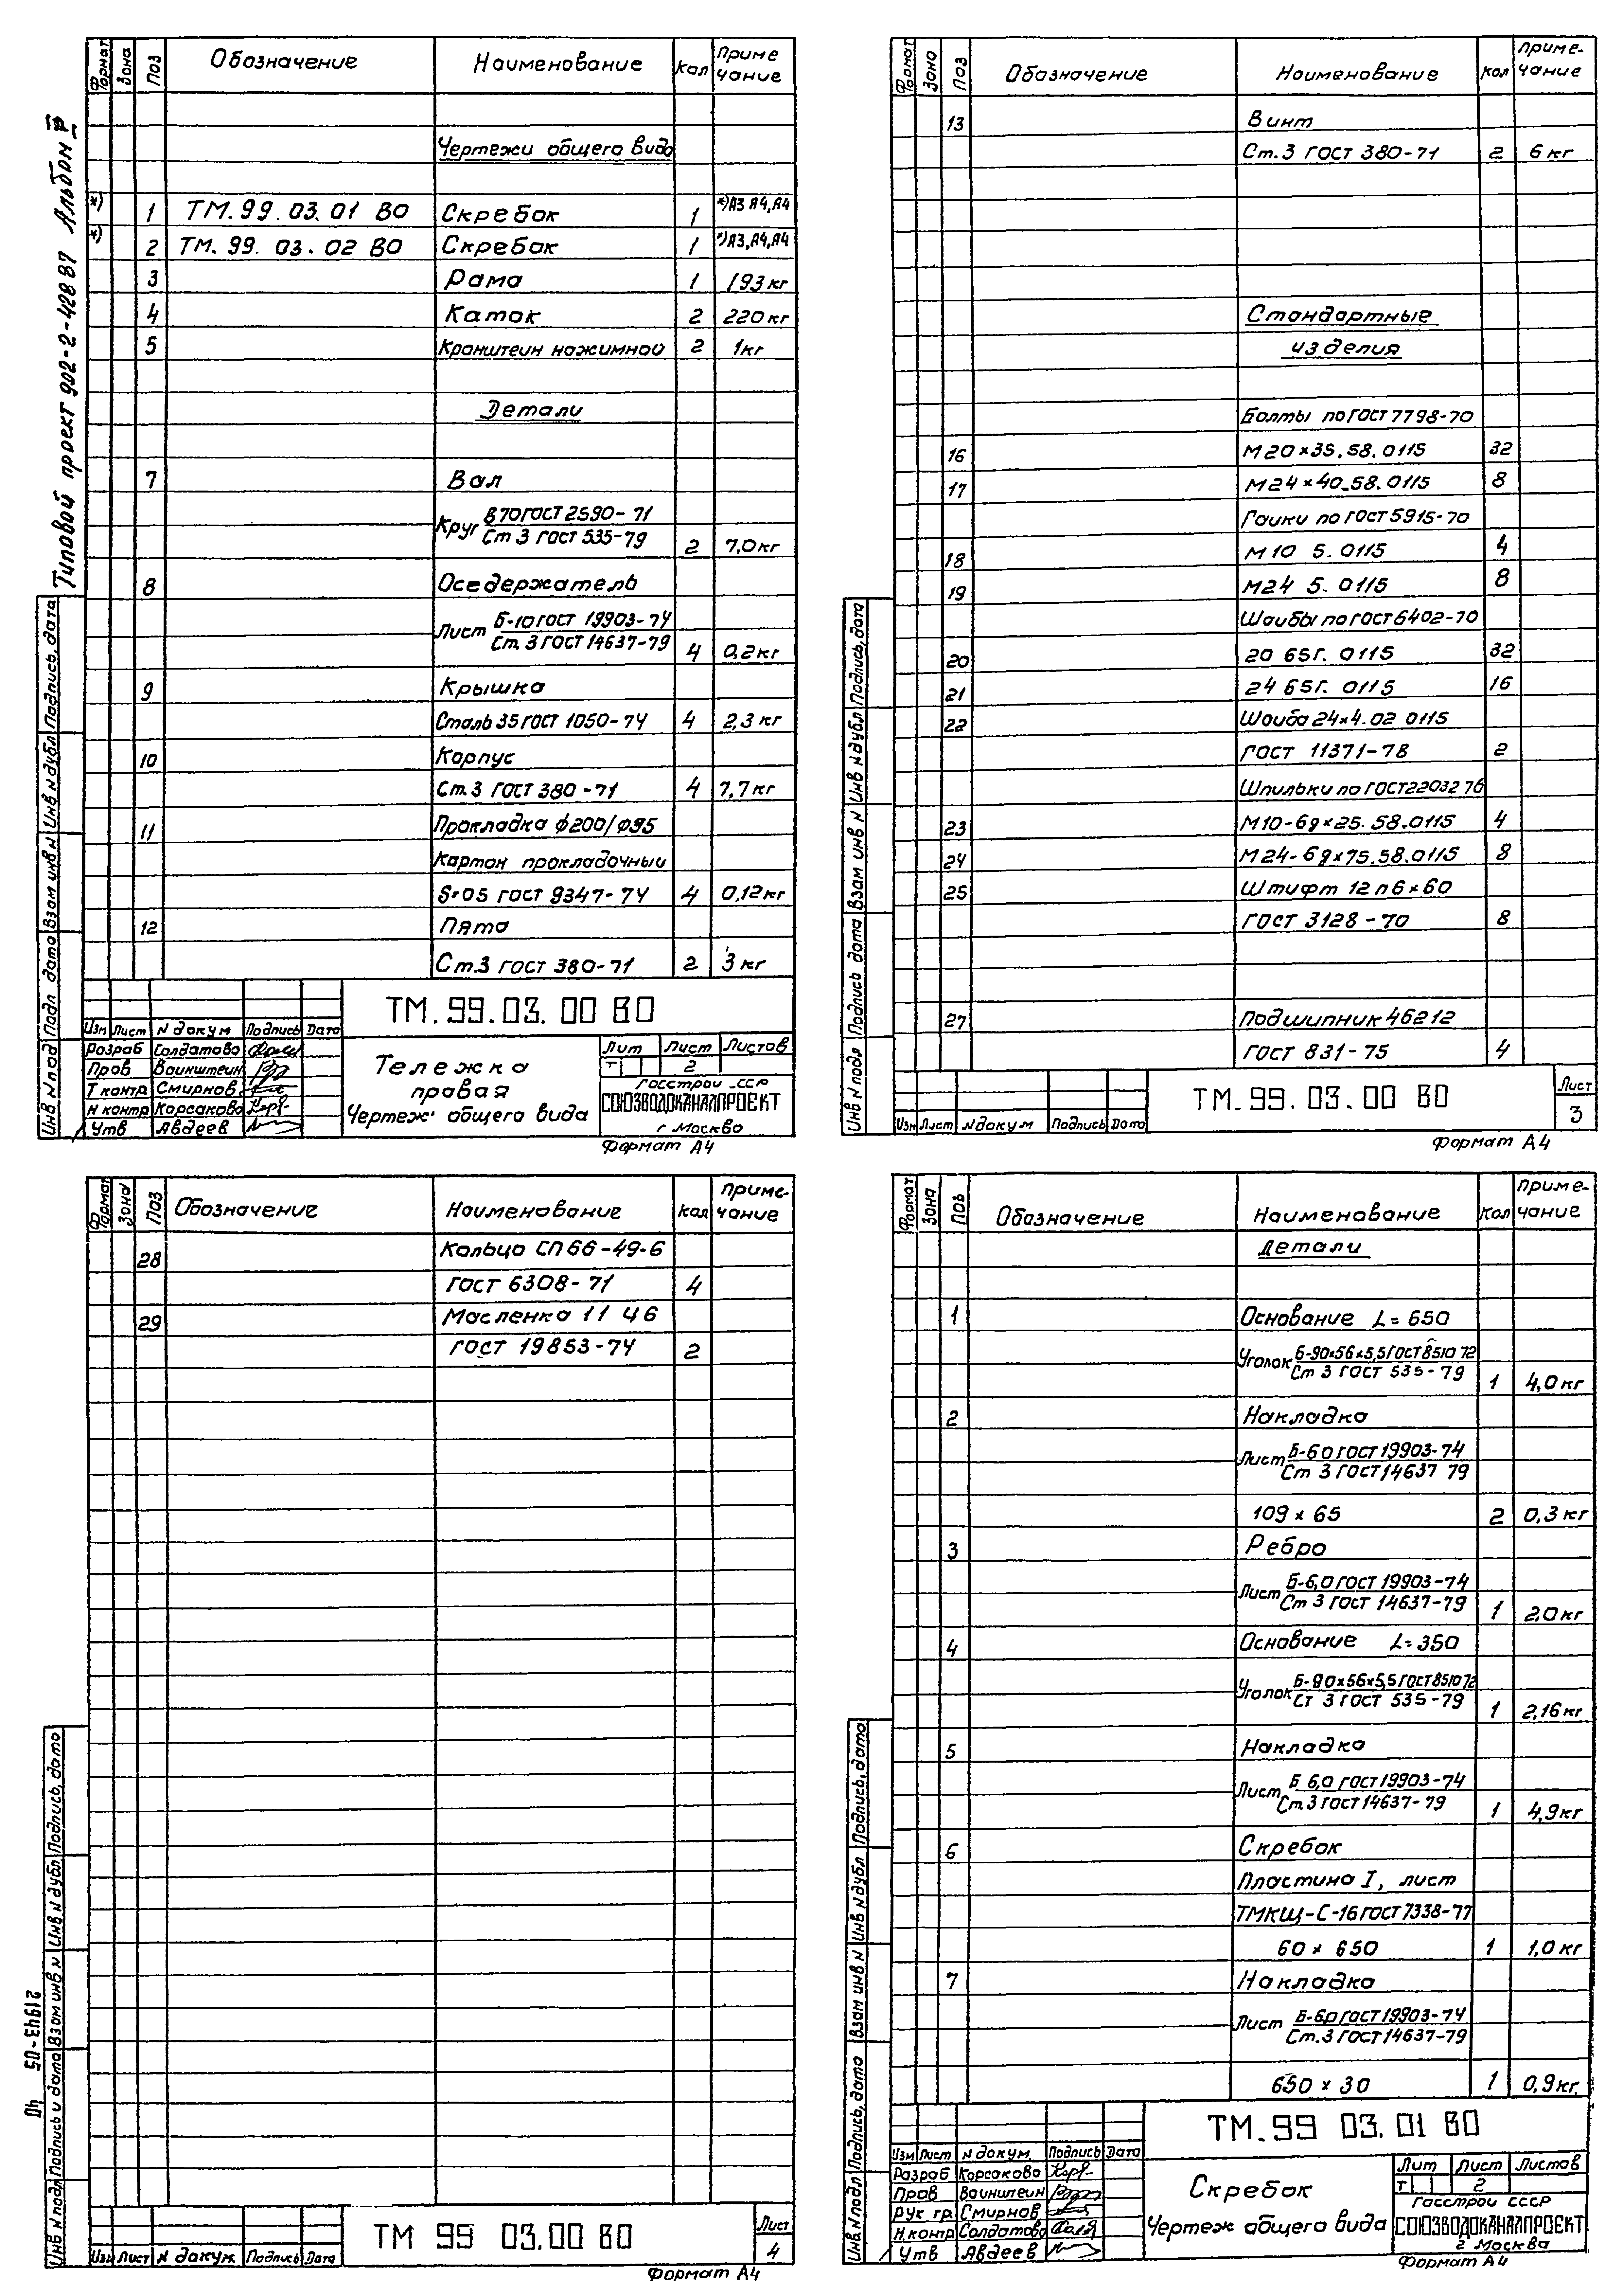 Типовой проект 902-2-428 87 Альбом V
Формат Зона Поз Обозначение Наименование Кол Приме чание
Чертежи общего вида
*) 1 ТМ.99.03.01 ВО Скребок 1 *)А3 А4,А4
*) 2 ТМ.99.03.02 ВО Скребок 1 *)А3,А4,А4
3 Рама 1 193 кг
4 Каток 2 220 кг
5 Кронштейн нажимной 2 1 кг
Детали
7 Вал
Круг В 70 ГОСТ 2590-71
Ст 3 ГОСТ 535-79 2 7,0 кг
8 Оседержатель
Лист Б-10 ГОСТ 19903-74
Ст. 3 ГОСТ 14637-79 4 0,2 кг
9 Крышка
Сталь 35 ГОСТ 1050-74 4 2,3 кг
10 Корпус
Ст.3 ГОСТ 380-71 4 7,7 кг
11 Прокладка ф200/ф95
Картон прокладочный
S=05 ГОСТ 9347-74 4 0,12 кг
12 Пята
Ст.3 ГОСТ 380-71 2 3 кг
Инв N подл Подп дата Взам инв N Инв N дубл Подпись, дата
ТМ.99.03.00 ВО
Изм Лист N докум Подпись Дата
Разраб Солдатова
Пров Вайнштейн
Т контр Смирнов
Н контр Корсакова
Утв Авдеев
Тележка
правая
Чертеж общего вида
Лит Лист Листов
Т 2
Госстрой СССР
СОЮЗВОДОКАНАЛПРОЕКТ
г Москва
Формат А4
Формат Зона Поз Обозначение Наименование Кол Приме-чание
13 Винт
Ст.3 ГОСТ 380-71 2 6 кг
Стандартные
изделия
Болты по ГОСТ 7798-70
16 М20×35.58.0115 32
17 М24×40.58.0115 8
Гайки по ГОСТ 5915-70
18 М10 5.0115 4
19 М24 5.0115 8
Шайбы по ГОСТ 6402-70
20 20 65Г. 0115 32
21 24 65Г. 0115 16
22 Шайба 24×4.02 0115
ГОСТ 11371-78 2
Шпильки по ГОСТ 22032 76
23 М10-6g×25.58.0115 4
24 М24-6g×75.58.0115 8
25 Штифт 12п6×60
ГОСТ 3128-70 8
27 Подшипник 46212
ГОСТ 831-75 4
Инв N подл Подпись дата Взам инв N Инв N дубл Подпись, дата
Изм Лист N докум Подпись Дата
ТМ.99.03.00 ВО
Лист
3
Формат А4
Формат Зона Поз Обозначение Наименование Кол Приме-чание
28 Кольцо СП 66-49-6
ГОСТ 6308-71 4
29 Масленка 11 Ц6
ГОСТ 19853-74 2
21943-05 40
Инв N подл Подпись и дата Взам инв N Инв N дубл Подпись, дата
Изм Лист N докум. Подпись Дата
ТМ 99 03.00 ВО
Лист
4
Формат А4
Формат Зона Поз Обозначение Наименование Кол Приме-чание
Детали
1 Основание L=650
Уголок Б-90×56×5,5 ГОСТ 8510 72
Ст 3 ГОСТ 535-79 1 4,0 кг
2 Накладка
Лист Б-6 0 ГОСТ 19903-74
Ст 3 ГОСТ 14637 79
109 × 65 2 0,3 кг
3 Ребро
Лист Б-6,0 ГОСТ 19903-74
Ст 3 ГОСТ 14637-79 1 2,0 кг
4 Основание L=350
Уголок Б-90×56×5,5 ГОСТ 8510 72
Ст 3 ГОСТ 535-79 1 2,16 кг
5 Накладка
Лист Б 6,0 ГОСТ 19903-74
Ст.3 ГОСТ 14637-79 1 4,9 кг
6 Скребок
Пластина I, лист
ТМКЩ-С-16 ГОСТ 7338-77
60 × 650 1 1,0 кг
7 Накладка
Лист Б-6,0 ГОСТ 19903-74
Ст.3 ГОСТ 14637-79
650 × 30 1 0,9 кг
Инв N подл Подпись, дата Взам инв N Инв N дубл Подпись, дата
ТМ.99 03.01 ВО
Изм Лист N докум. Подпись Дата
Разраб Корсакова
Пров Вайнштейн
Рук гр. Смирнов
Н.контр Солдатова
Утв Авдеев
Скребок
Чертеж общего вида
Лит Лист Листов
Т 2
Госстрой СССР
СОЮЗВОДОКАНАЛПРОЕКТ
г Москва
Формат А4